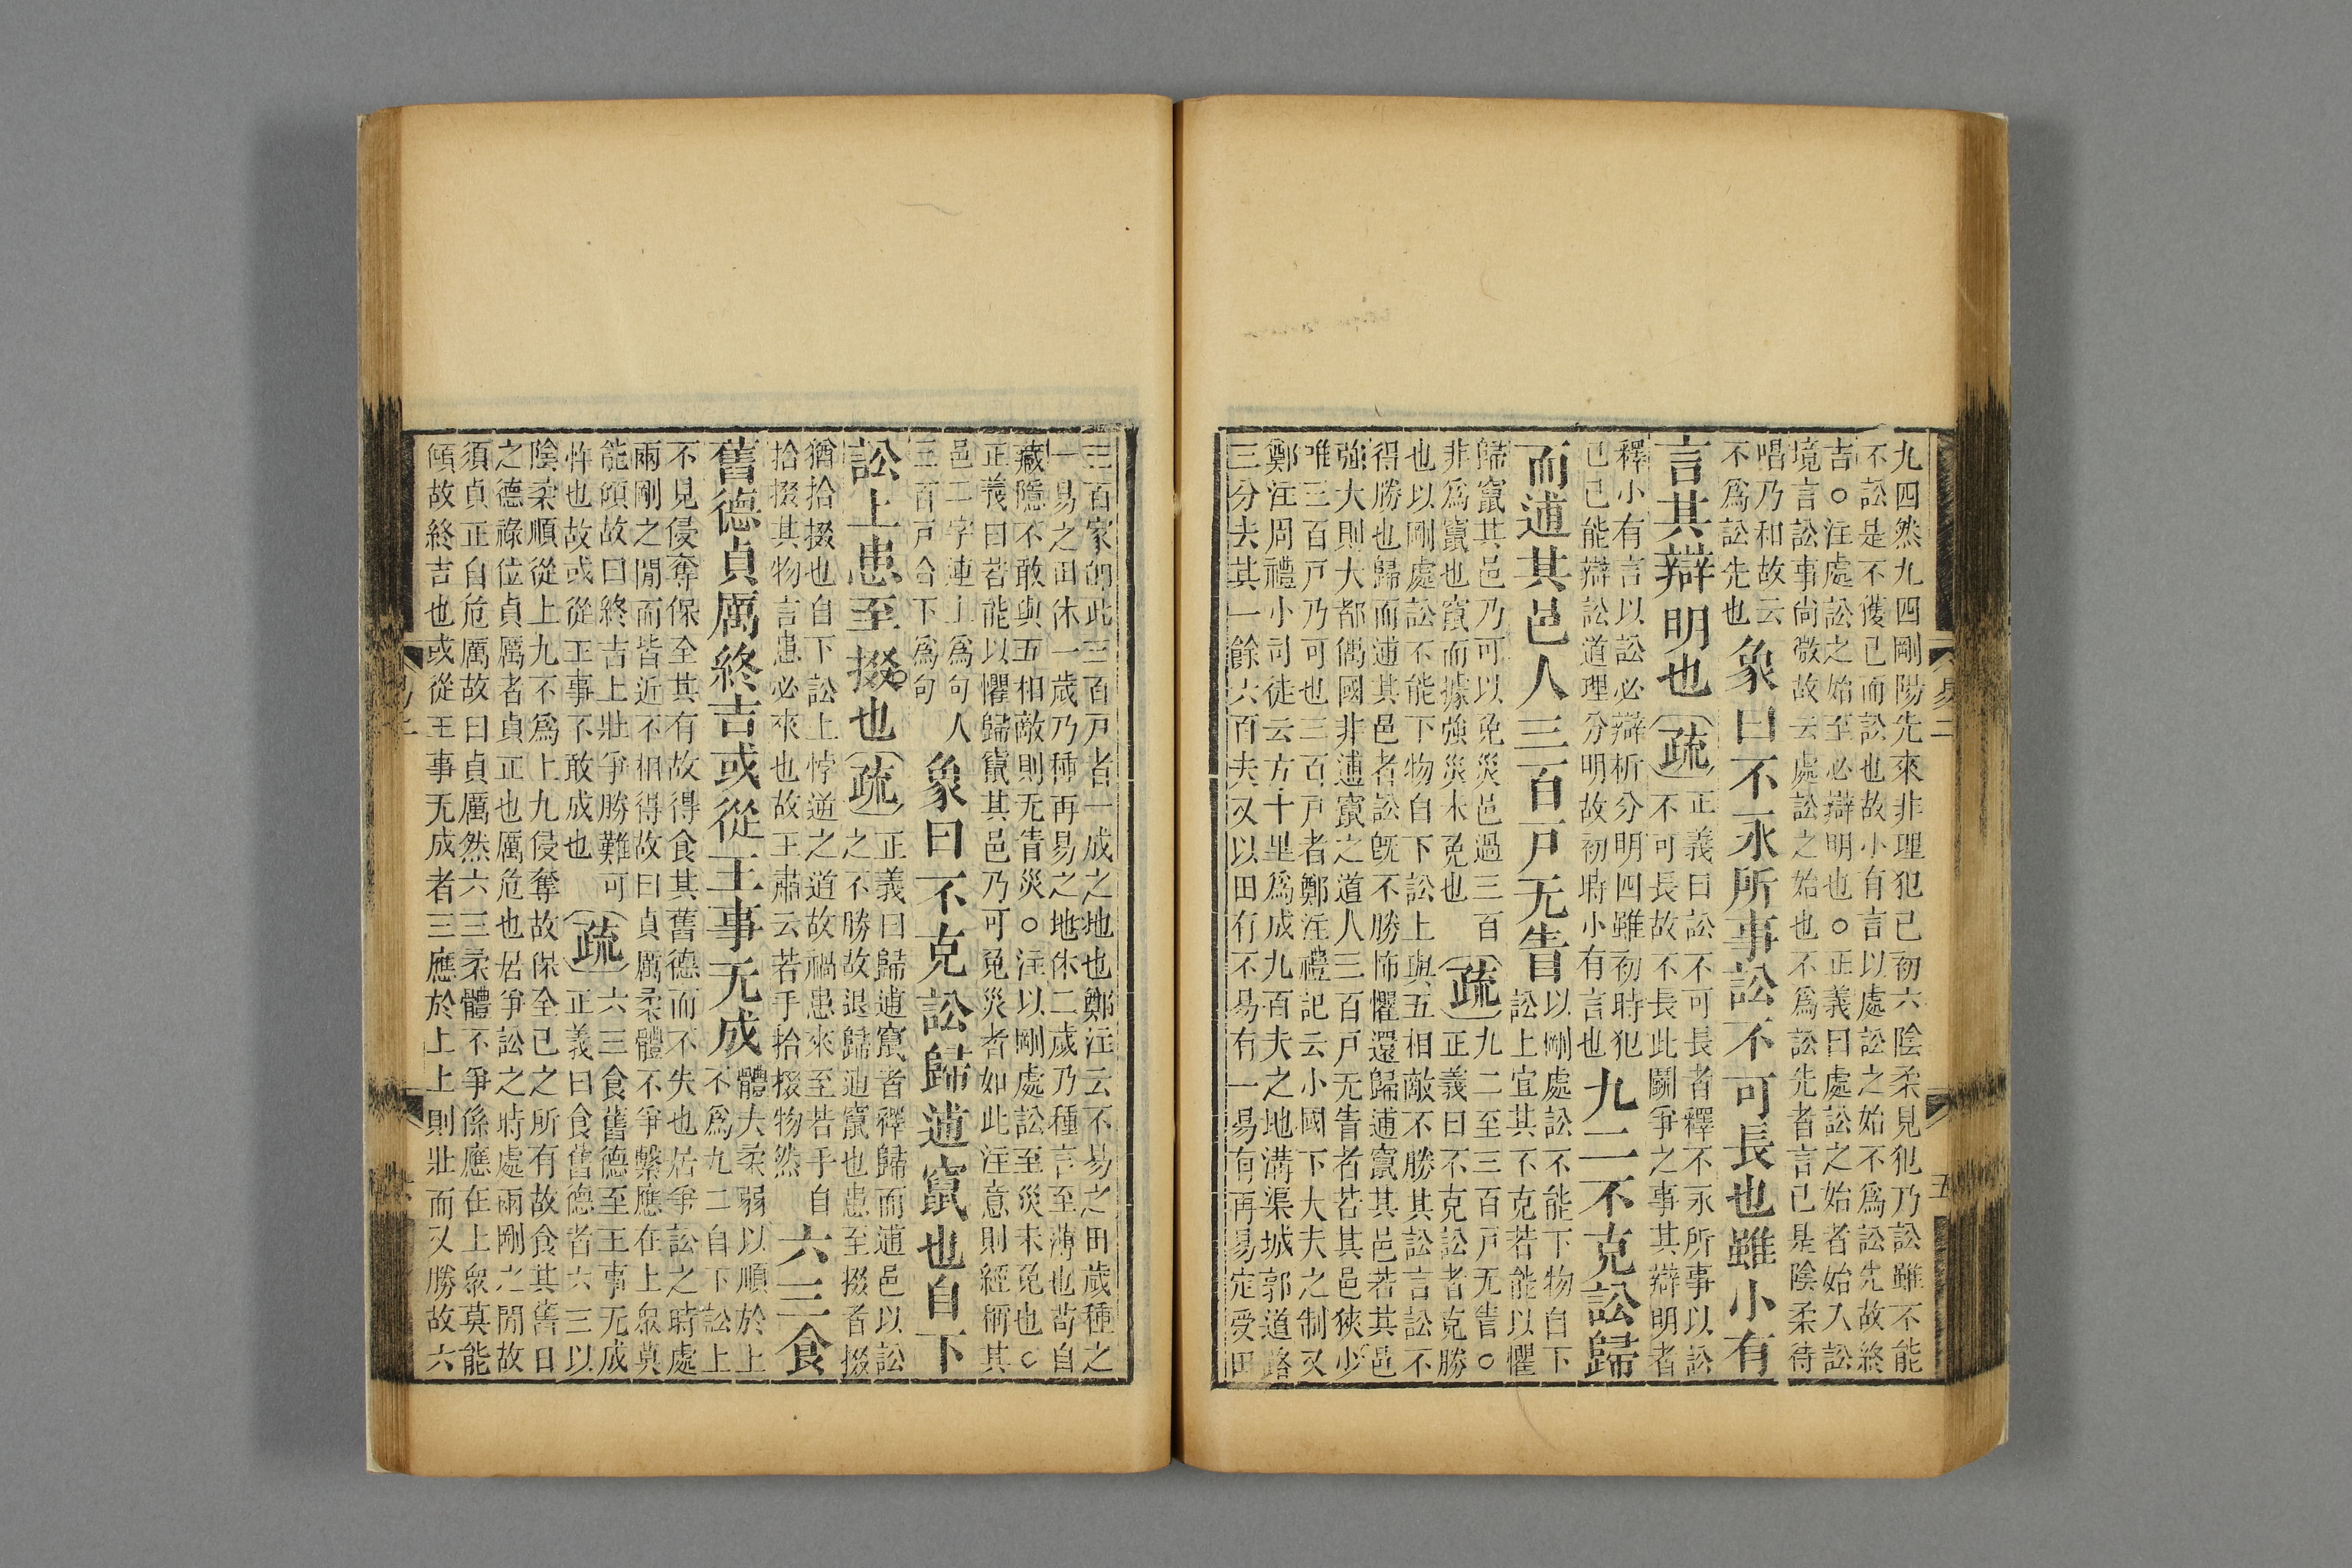 九四然九四剛陽先來非理犯己初六陰柔見犯乃訟雖不能
不訟是不獲已而訟也故小有言以處訟之始不爲訟先故終
吉○注處訟之始至必辯明也○正義曰處訟之始者始入訟
境言訟事尚微故云處訟之始也不爲訟先者言己是陰柔待
唱乃和故云
不爲訟先也
象曰不永所事訟不可長也雖小有
言其辯明也
疏
正義曰訟不可長者釋不永所事以訟
不可長故不長此鬭爭之事其辯明者
釋小有言以訟必辯析分明四雖初時犯
己己能辯訟道理分明故初時小有言也
九二不克訟歸
而逋其邑人三百戸无眚
以剛處訟不能下物自下
訟上宜其不克若能以懼
歸竄其邑乃可以免災邑過三百
非爲竄也竄而據強災未免也
疏
九二至三百戸无眚○
正義曰不克訟者克勝
也以剛處訟不能下物自下訟上與五相敵不勝其訟言訟不
得勝也歸而逋其邑者訟旣不勝怖懼還歸逋竄其邑若其邑
強大則大都偶國非逋竄之道人三百戸无眚者若其邑狹少
唯三百戸乃可也三百戸者鄭注禮記云小國下大夫之制又
鄭注周禮小司徒云方十里爲成九百夫之地溝渠城郭道路
三分去其一餘六百夫又以田有不易有一易有再易定受田
易二
五
三百家卽此三百戸者一成之地也鄭注云不易之田歲種之
一易之田休一歲乃種再易之地休二歲乃種言至薄也苟自
藏隱不敢與五相敵則无眚災○注以剛處訟至災未免也○
正義曰若能以懼歸竄其邑乃可免災者如此注意則經稱其
邑二字連上爲句人
三百戸合下爲句
象曰不克訟歸逋竄也自下
訟上患至掇也
疏
正義曰歸逋竄者釋歸而逋邑以訟
之不勝故退歸逋竄也患至掇者掇
猶拾掇也自下訟上悖逆之道故禍患來至若手自
拾掇其物言患必來也故王肅云若手拾掇物然
六三食
舊德貞厲終吉或從王事无成
體夫柔弱以順於上
不爲九二自下訟上
不見侵奪保全其有故得食其舊德而不失也居爭訟之時處
兩剛之閒而皆近不相得故曰貞厲柔體不爭繫應在上衆莫
能傾故曰終吉上壯爭勝難可
忤也故或從王事不敢成也
疏
六三食舊德至王事无成
正義曰食舊德者六三以
陰柔順從上九不爲上九侵奪故保全己之所有故食其舊日
之德祿位貞厲者貞正也厲危也居爭訟之時處兩剛之閒故
須貞正自危厲故曰貞厲然六三柔體不爭係應在上衆莫能
傾故終吉也或從王事无成者三應於上上則壯而又勝故六